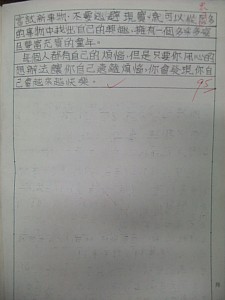 嘗試新事物,不要逃避現實,就可以從很多
的事物中找出自己的興趣,擁有一個多采多姿
且豐富充實的童年。
每個人都有自己的煩惱,但是只要你用心的
想辦法讓你自己遠離煩惱,你會發現,你自
己會越來越快樂。
95